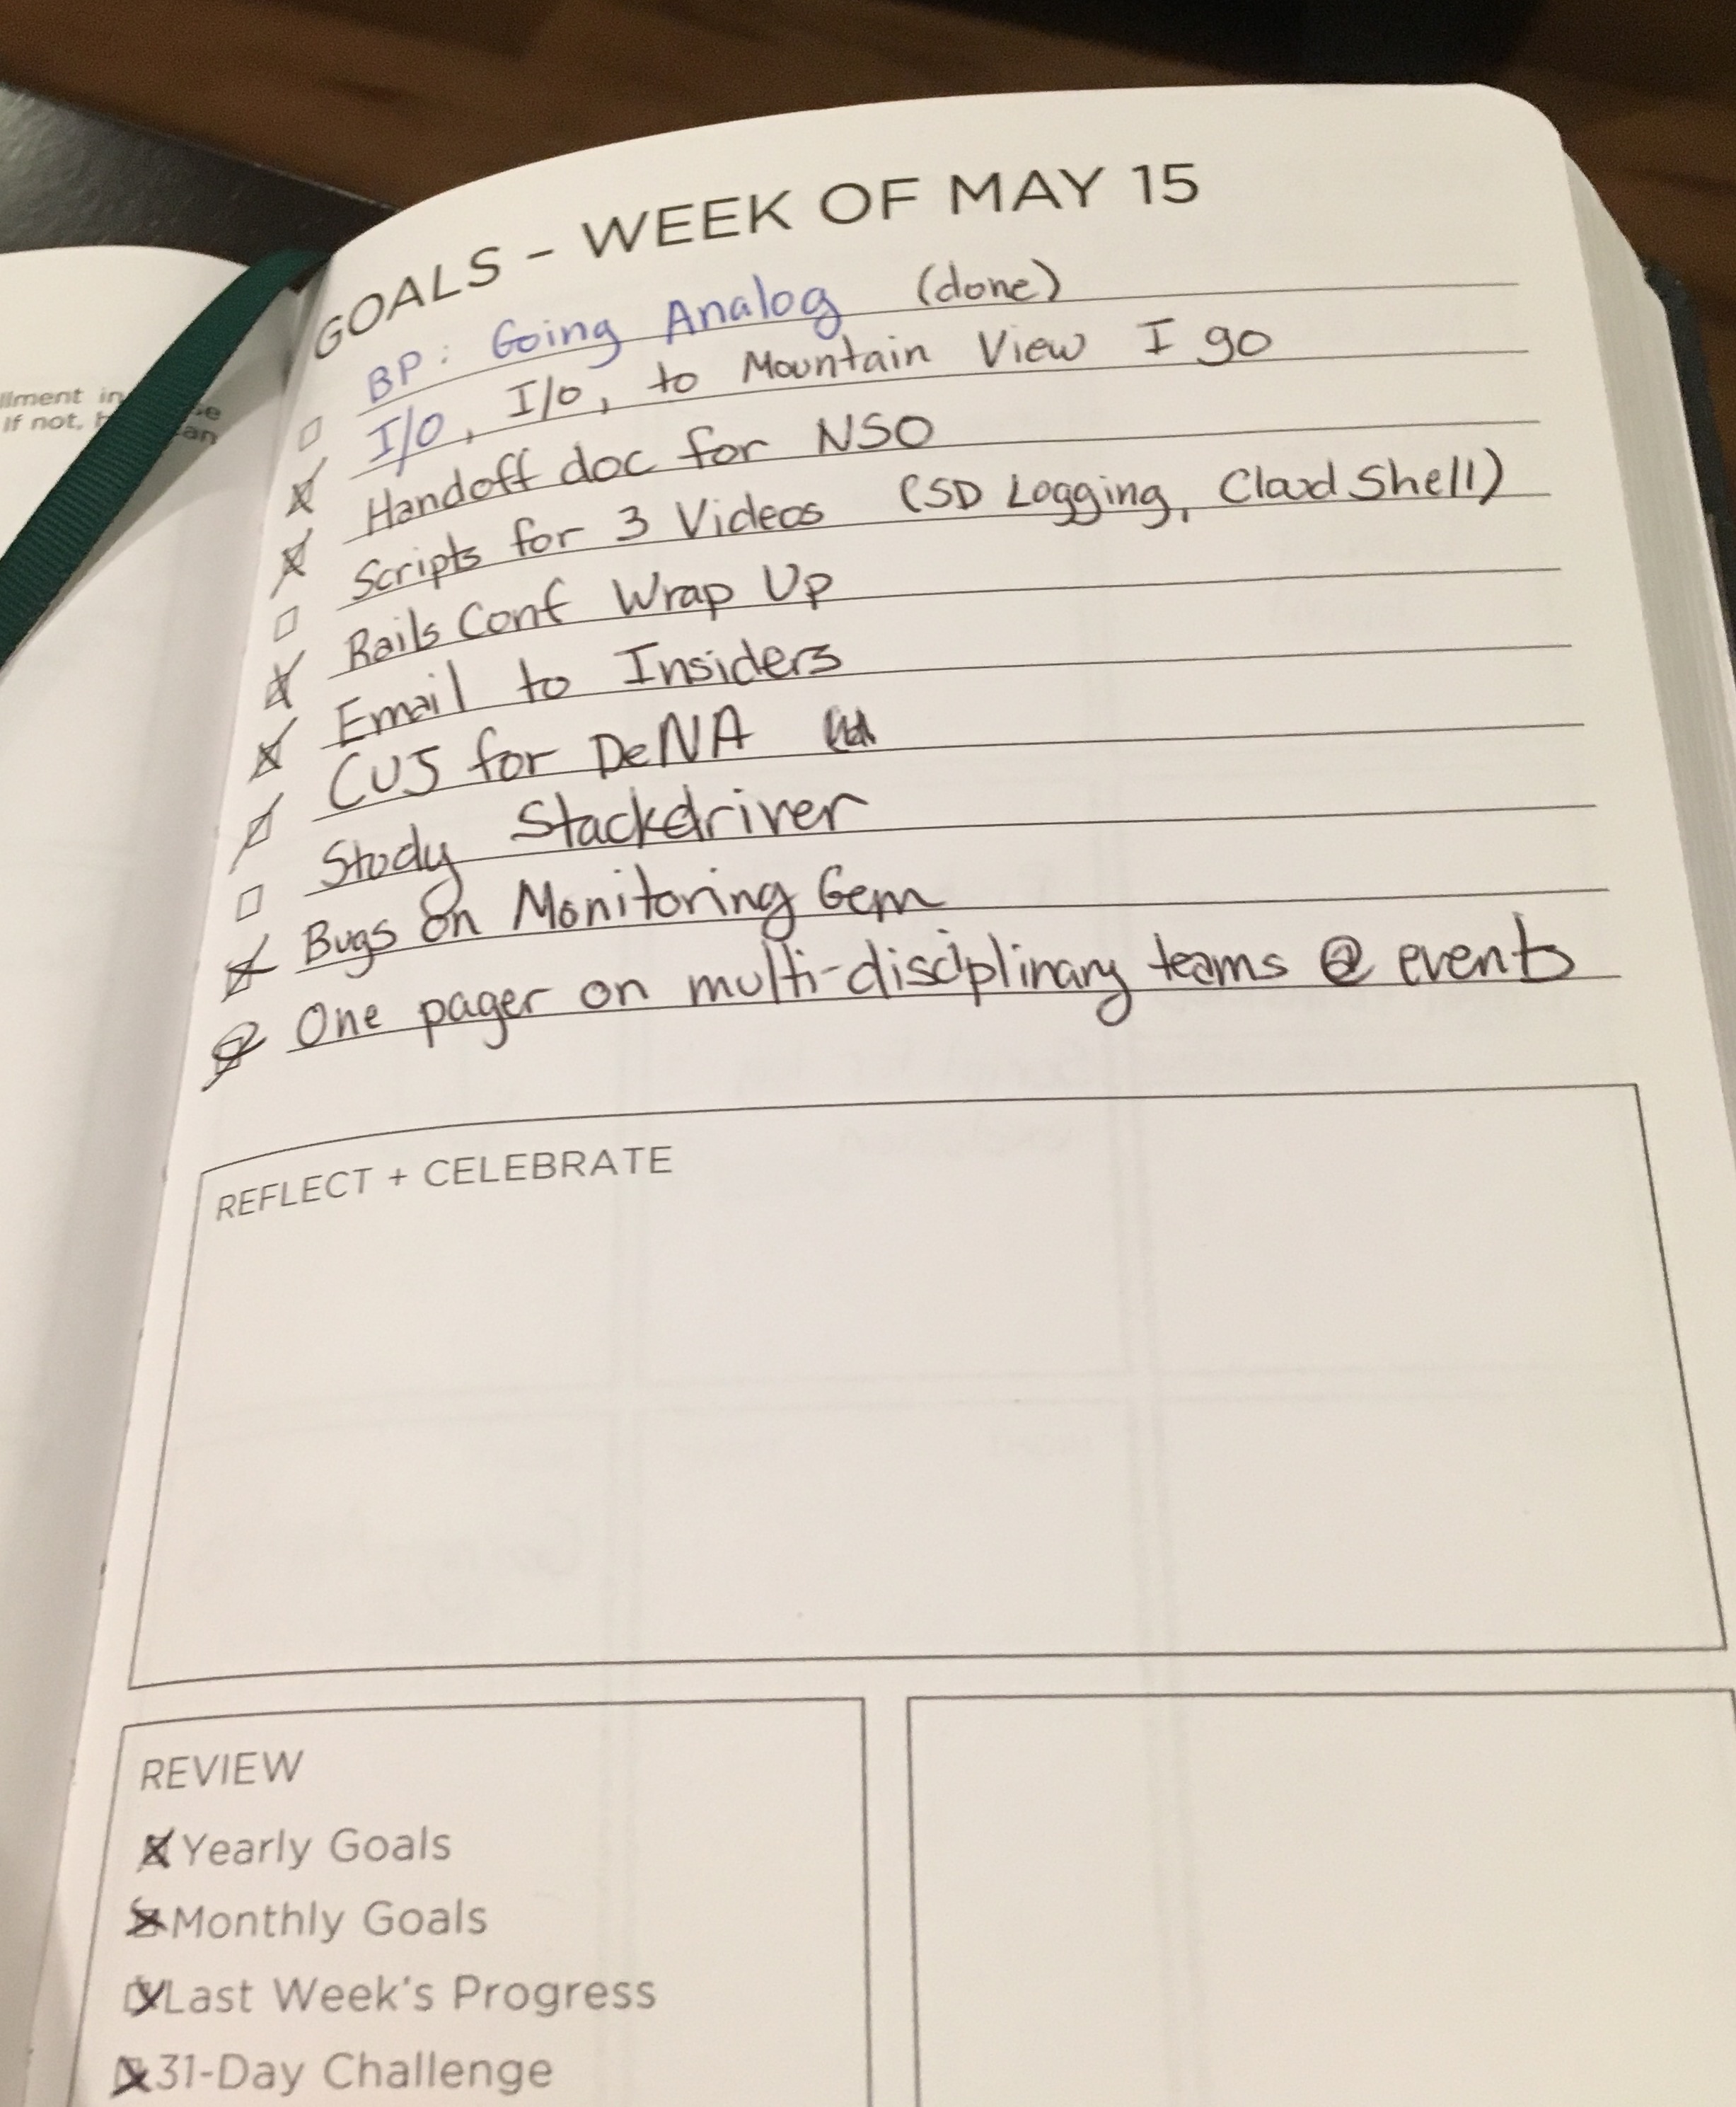 llment in
If not,
se
can
GOALS – WEEK OF MAY 15
BP: Going Analog (done)
I/O, I/O, to Mountain View I go
Handoff doc for NSO
Scripts for 3 Videos (SD Logging, Cloud Shell)
Rails Conf Wrap Up
Email to Insiders
CUJ for DeNA
Study Stackdriver
Bugs on Monitoring Gem
One pager on multi-disciplinary teams @ events
REFLECT + CELEBRATE
REVIEW
Yearly Goals
Monthly Goals
Last Week's Progress
31-Day Challenge